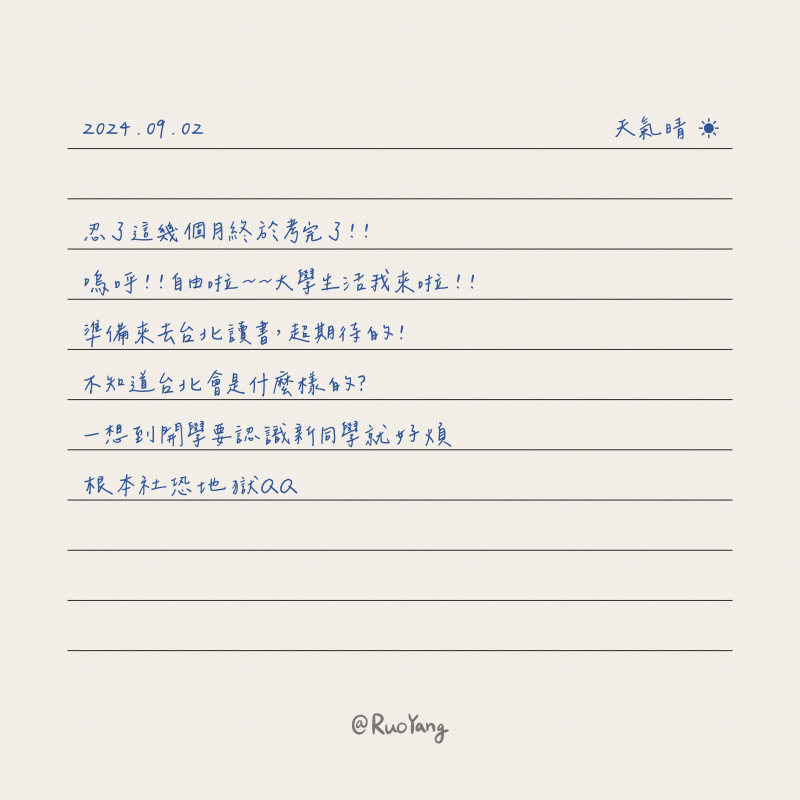 2024.09.02 天氣晴
忍了這幾個月終於考完了!!
嗚呼!!自由啦~~大學生活我來啦!!
準備來去台北讀書,超期待的!
不知道台北會是什麼樣的?
一想到開學要認識新同學就好煩
根本社恐地獄QQ
@RuoYang